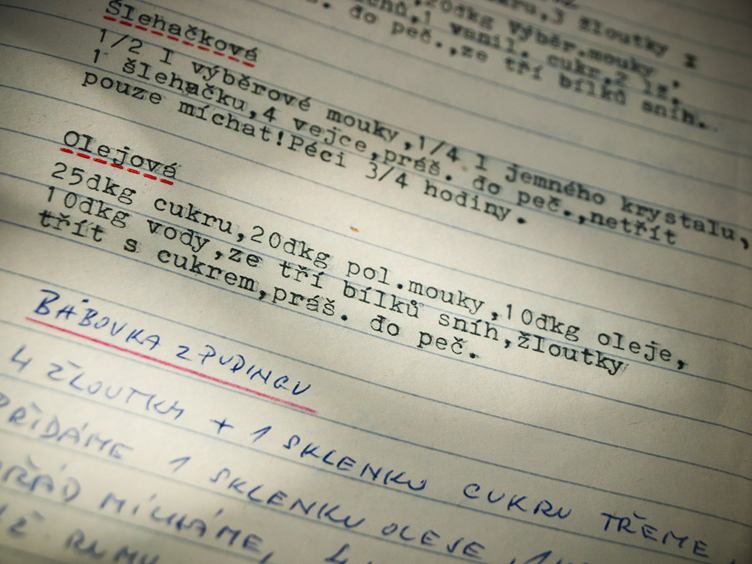 20dkg výběr.mouky,
cukru,3 žloutky
1 vanil. cukr,2 lž.
do peč.,ze tří bílků sníh.
Šlehačková
1/2 l výběrové mouky,1/4 l jemného krystalu,
1 šlehačku,4 vejce,práš. do peč.,netřít
pouze míchat!Péci 3/4 hodiny.
Olejová
25dkg cukru,20dkg pol.mouky,10dkg oleje,
10dkg vody,ze tří bílků sníh,žloutky
třít s cukrem,práš. do peč.
BÁBOVKA Z PUDINGU
4 ŽLOUTKY + 1 SKLENKU CUKRU TŘEME
PŘIDÁME 1 SKLENKU OLEJE
MÍCHÁME,
RUMU